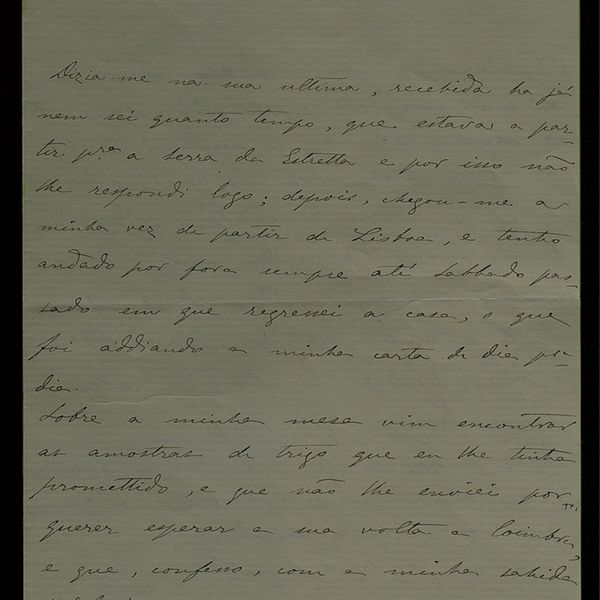 Dizia-me na sua ultima, recebida ha já
nem sei quanto tempo, que estava a par-
tir p.ª a serra da Estrella e por isso não
lhe respondi logo; depois, chegou-me a
minha vez de partir de Lisboa, e tenho
andado por fora sempre até sabbado pas-
sado em que regressei a casa, o que
foi addiando a minha carta de dia p.ª
dia.
Sobre a minha mesa vim encontrar
as amostras de trigo que eu lhe tinha
promettido, e que não lhe enviei por
querer esperar a sua volta a Coimbra,
e que, confesso, com a minha sahida